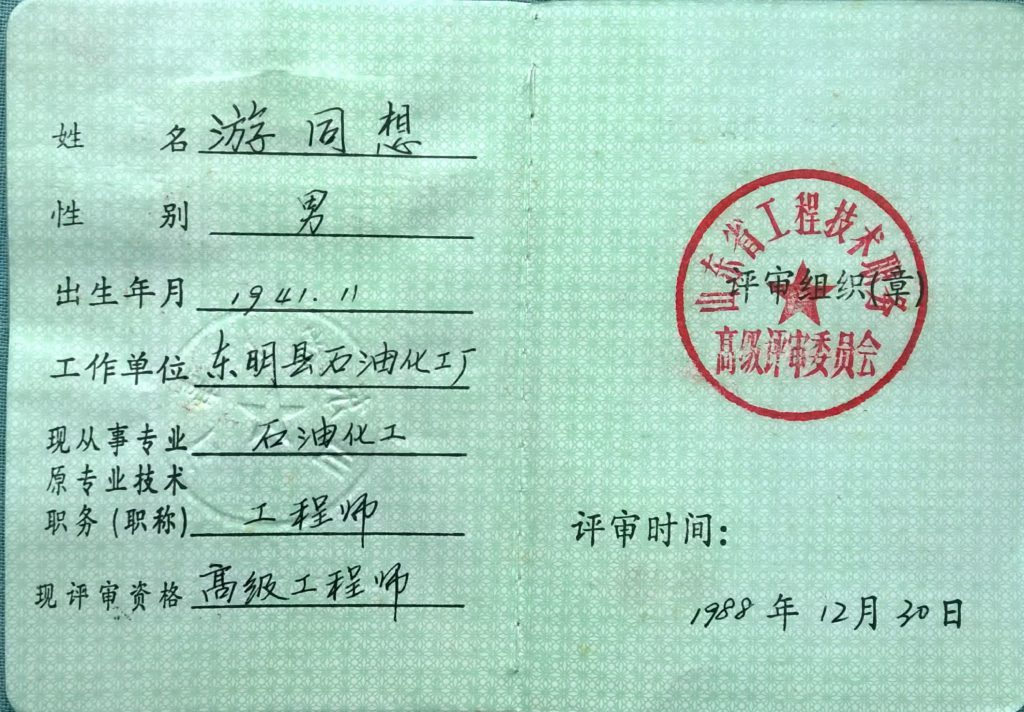 姓 名 游同想
性 别 男
出生年月 1941.11
工作单位 东明县石油化工厂
现从事专业 石油化工
原专业技术
职务(职称) 工程师
现评审资格 高级工程师
山东省工程技术职务
评审组织(章)
高级评审委员会
评审时间:
1988年12月30日